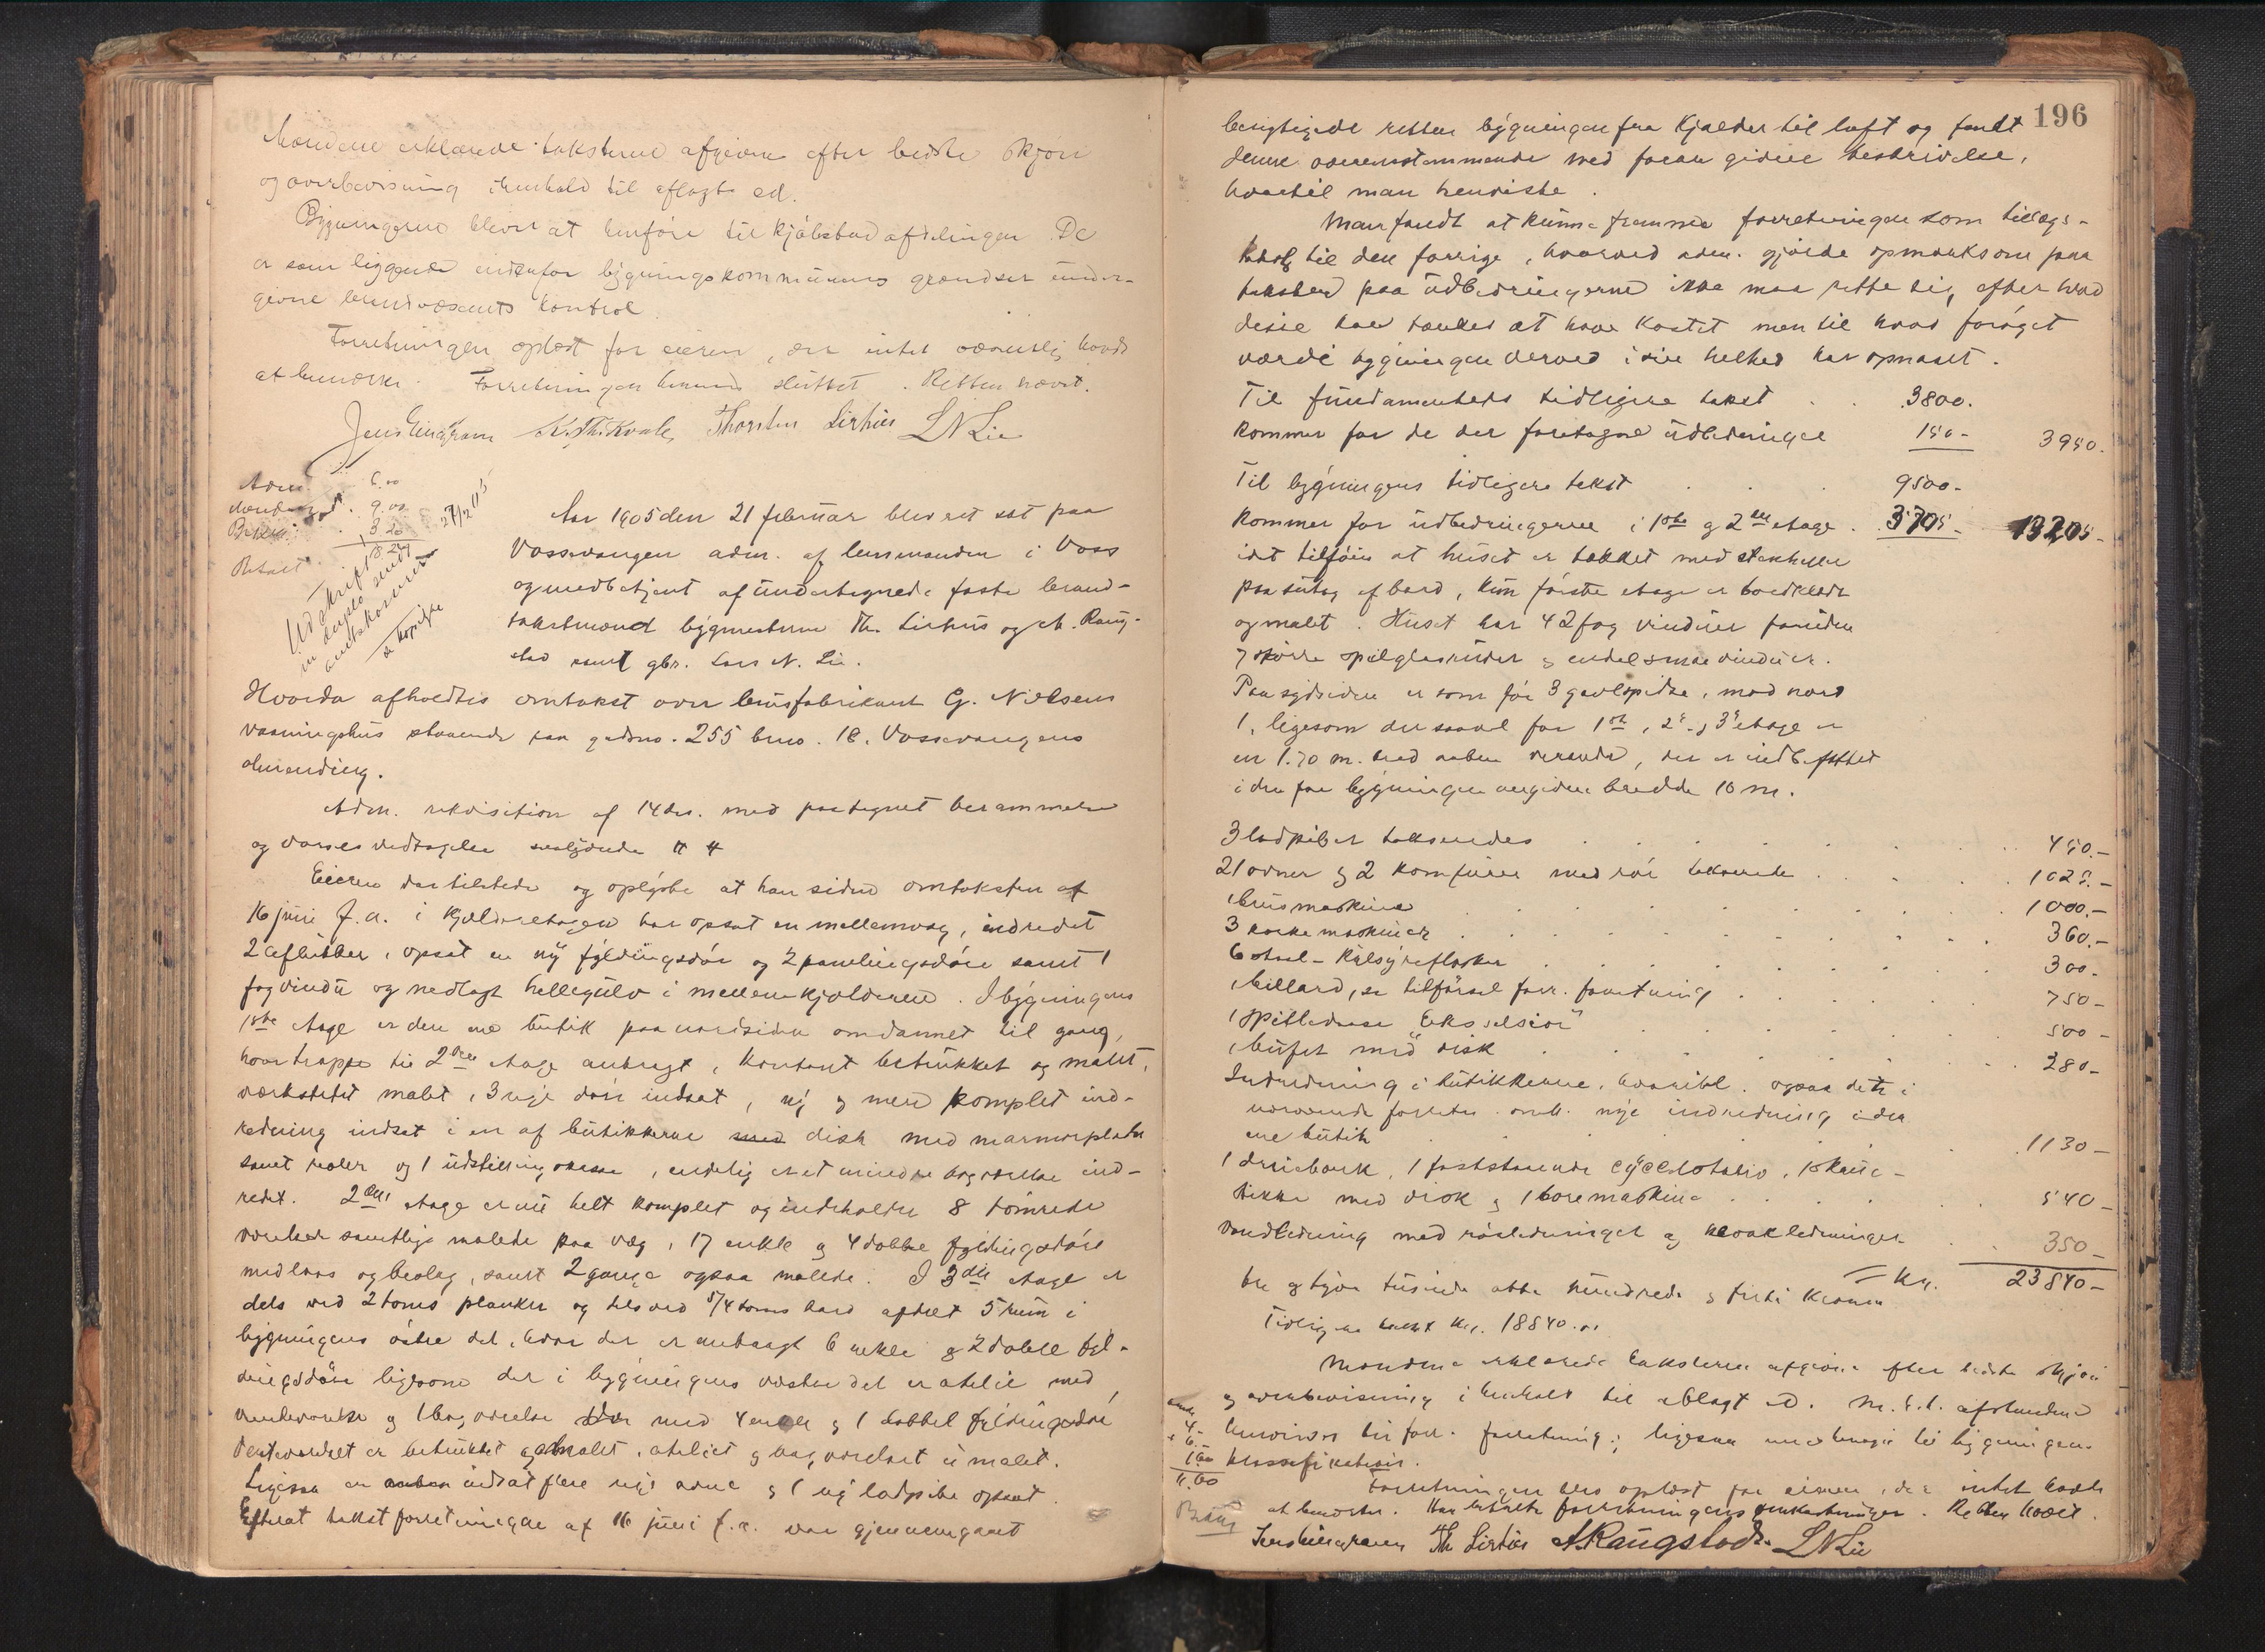 Mændene erklærede taksterne afgivne efter bedste skjøn
og overbevisning i henhold til aflagt ed.
Bygningerne bliver at henføre til kjøbstadafdelingen. De
er som liggende indenfor bygningskommunens grændser under-
givne brandvæsenets kontrol.
Forretningen oplæst for eieren, der intet væsentlig havde
at bemærke. Forretningen hermed sluttet. Retten hævet.
Jens Gjengram K. Th. Kvale Thorsten Lirhus L N Lie
Adm. 6.00
Mændene 9.00
3.20
18.20
Betalt
27/2 05
Udskrift
Aar 1905 den 21 februar blev ret sat paa
Vossevangen adm. af lensmanden i Voss
og medbetjent af undertegnede faste brand-
takstmænd bygmesterne Th. Lirhus og A. Raug-
stad samt gbr. Lars N. Lie.
Hvorda afholdtes omtakst over brusfabrikant G. Nielsens
vaaningshus staaende paa gadno. 255 bno. 18. Vossevangens
almending.
Adm. rekvisition af 14 ds. med paategnet berammelse
og varsels vedtagelse saalydende # #
Eieren var tilstede og oplyste at han siden omtaksten af
16 juni f. a. i kjælderetagen har opsat en mellemvæg, indredet
2 aflukker, opsat en ny fyldingsdør og 2 panelingsdøre samt 1
fag vindu og nedlagt hellegulv i mellemkjælderen. I bygningens
1ste etage er den ene butik paa nordsiden omdannet til gang,
hvor trappe til 2den etage anbragt, kontoret betrukket og malet,
værkstedet malet, 3 nye døre indsat, ny og mere komplet ind-
redning indsat i en af butikkerne med disk med marmorplade
samt reoler og 1 udstillingskasse, endelig er et mindre bagværelse ind-
redet. 2den etage er nu helt komplet og indeholder 8 tømrede
værelser samtlige malede paa væg, 17 enkle og 4 dobbe fyldingsdøre
med laas og beslag, samt 2 gange ogsaa malede. I 3die etage er
dels ved 2 toms planker og dels ved 5/4 toms bord afdelt 5 rum i
bygningens østre del, hvor der er anbragt 6 enkle og 2 doble fyl-
dingsdøre ligesom der i bygningens vestre del er atelie med
venteværelse og 1 bagværelse med 4 enkle og 1 dobbel fyldingsdør
Venteværelset er betrukket og malet, ateliet og bagværelset umalet.
Ligesaa er indsat flere nye ovne og 1 ny ladpibe opsat.
Efterat takstforretningen af 16 juni f. a. var gjennemgaaet
196
besigtigede retten bygningen fra kjælder til loft og fandt
denne overensstemmende med foran givne beskrivelse,
hvortil man henviste.
Man fandt at kunne fremme forretningen som tillægs-
takst til den forrige, hvorved adm. gjorde opmærksom paa
taksten paa udbedringerne ikke maa rette sig efter hvad
disse kan tænkes at have kostet men til hvad forøget
værdi bygningen derved i sin helhed har opnaaet.
Til fundamentets tidligere takst . . 3800.
Kommer for de der foretagne udbedringer 150 - 3950.
Til bygningens tidligere takst . . . 9500 -
Kommer for udbedringerne i 1ste og 2den etage . 3705 - 13205 -
idet tilføies at huset er tækket med stenheller
paa sutag af bord, kun første etage er bordklædt
og malet. Huset har 42 fag vinduer foruden
7 større speilglasruder og endel smaa vinduer.
Paa sydsiden er som før 3 gavlspidse, mod nord
1, ligesom der saavel for 1ste, 2den og 3die etage er
en 1.70 m. bred aaben veranda, der er indbefattet
i den for bygningen angivne bredde 10 m.
3 ladpiber takseredes . . . 450.-
21 ovner og 2 komfurer med rør takserede . . . 1025.-
1 brusmaskine . . . 1000.-
3 korkemaskiner . . . 360.-
6 staal-kulsyreflasker . . . 300.-
1 billard, se tilførsel forr. forretning . . . 750 -
1 spilledaase "Ekselsior" . . . 500 -
1 bufet med disk . . . 280 -
Indredning i butikkerne, hvoriblt. ogsaa dets i
nærværende forretn. omh. nye indredning i den
ene butik . . . 1130 -
1 dreiebænk, 1 faststaaende cyclestativ, 1 skrue-
stikke med disk og 1 boremaskine . . . 540 -
Vandledning med rørledninger og kloakledninger . . 350 -
= Kr. 23840 -
tre og tyve tusinde otte hundrede og firti kroner
Tidligere takst kr. 18840.00
Mændene erklærede taksterne afgivne efter bedste skjøn
og overbevisning i henhold til aflagt ed. M. h. t. afstandene
henvises til forr. forretning; ligesaa med hensyn til bygningens
klassefikation.
Forretningen blev oplæst for eieren, der intet havde
at bemærke. Han betalte forretningens omkostninger. Retten hævet.
4.-
6.-
1.60
11.60
Jens Gjengram Th Lirhus A. Raugstad. L N Lie